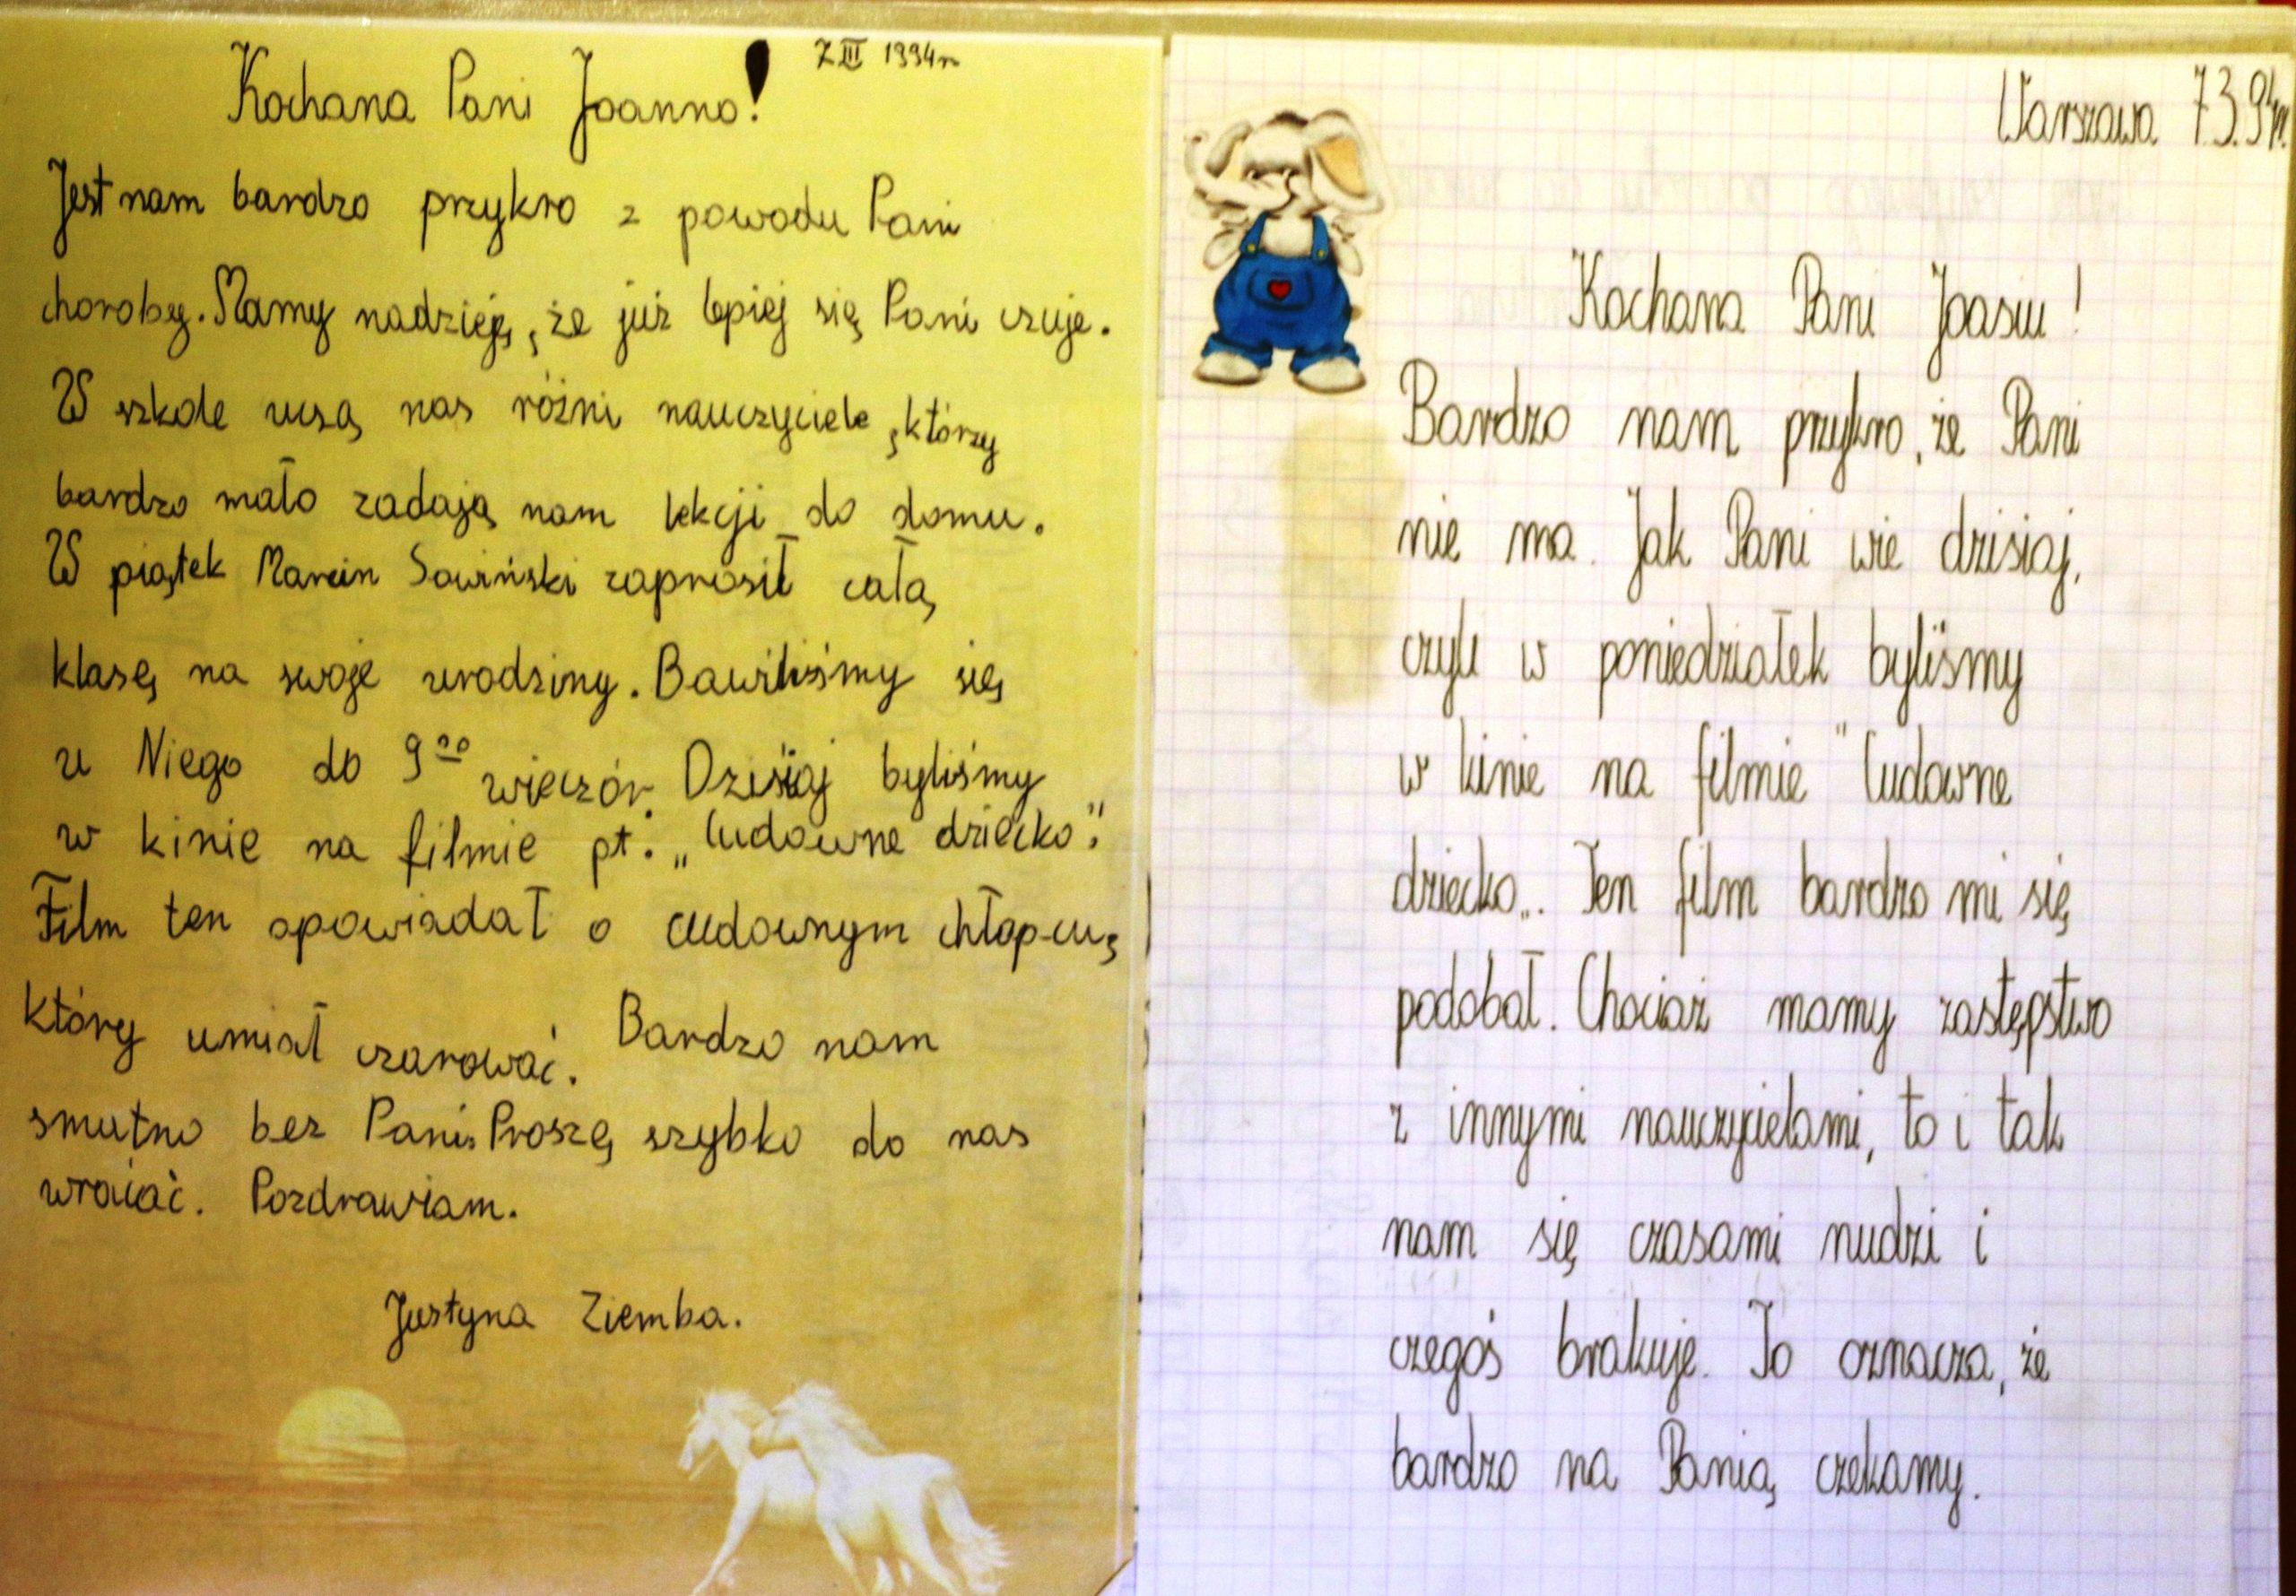 7 III 1994r
Kochana Pani Joanno!
Jest nam bardzo przykro z powodu Pani
choroby. Mamy nadzieję, że już lepiej się Pani czuje.
W szkole uczą nas różni nauczyciele, którzy
bardzo mało zadają nam lekcji do domu.
W piątek Marcin Sawiński zaprosił całą
klasę na swoje urodziny. Bawiliśmy się
u Niego do 9⁰⁰ wieczór. Dzisiaj byliśmy
w kinie na filmie pt. „Cudowne dziecko".
Film ten opowiadał o cudownym chłop-cu,
który umiał czarować. Bardzo nam
smutno bez Pani. Proszę szybko do nas
wracać. Pozdrawiam.
Justyna Ziemba.
Warszawa 7.3.94r.
Kochana Pani Joasiu!
Bardzo nam przykro, że Pani
nie ma. Jak Pani wie dzisiaj,
czyli w poniedziałek byliśmy
w kinie na filmie "Cudowne
dziecko„. Ten film bardzo mi się
podobał. Chociaż mamy zastępstwo
z innymi nauczycielami, to i tak
nam się czasami nudzi i
czegoś brakuje. To oznacza, że
bardzo na Panią czekamy.